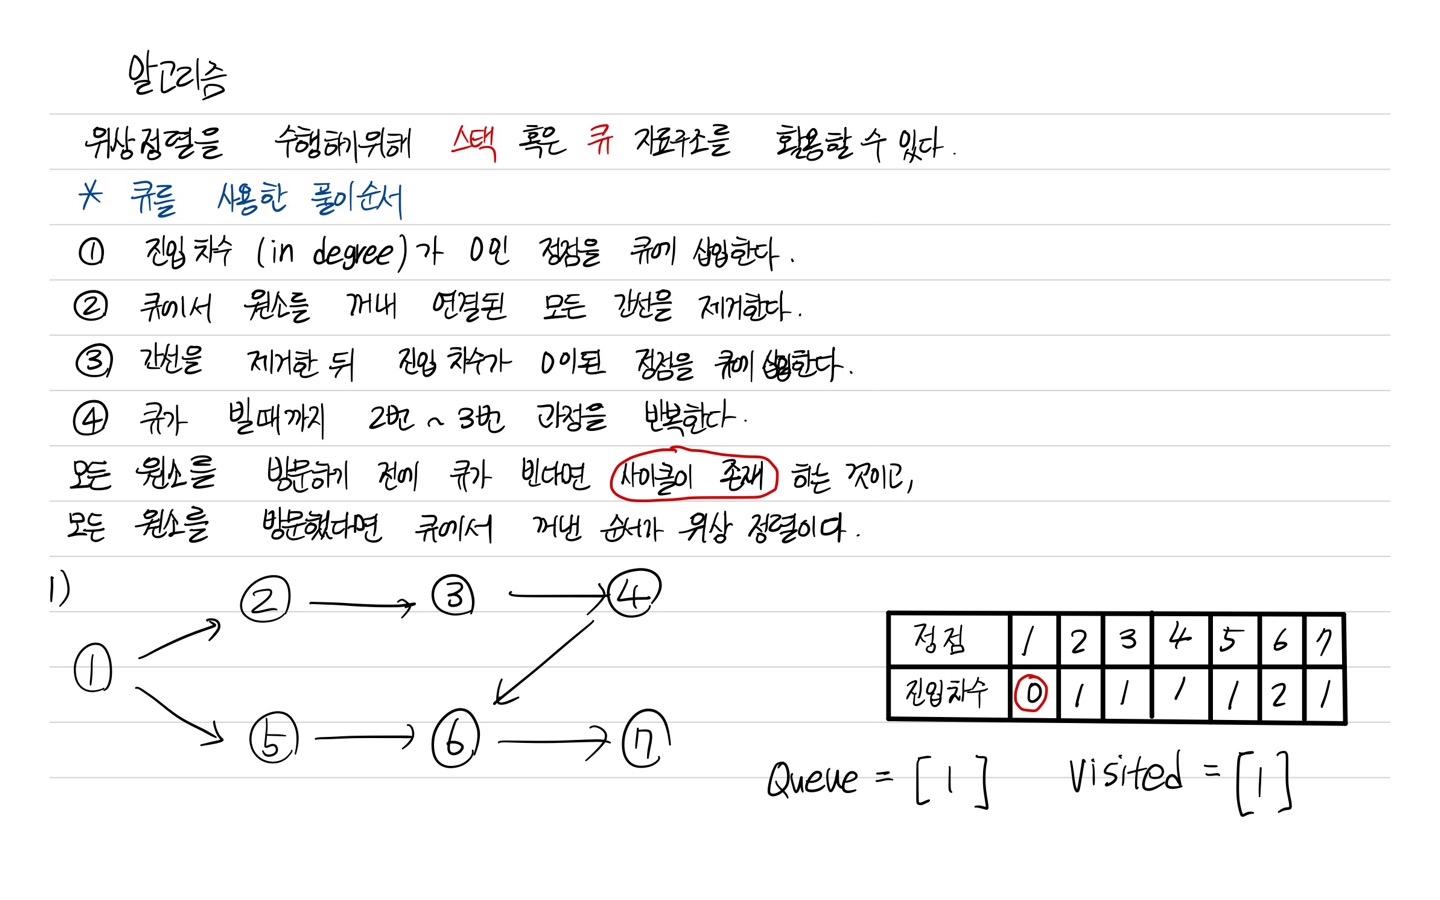 알고리즘
위상정렬을 수행하기위해 스택 혹은 큐 자료구조를 활용할 수 있다.
* 큐를 사용한 풀이순서
① 진입차수 (in degree)가 0인 정점을 큐에 삽입한다.
② 큐에서 원소를 꺼내 연결된 모든 간선을 제거한다.
③ 간선을 제거한 뒤 진입 차수가 0이된 정점을 큐에 삽입한다.
④ 큐가 빌때까지 2번 ~ 3번 과정을 반복한다.
모든 원소를 방문하기 전에 큐가 빈다면 사이클이 존재 하는 것이고,
모든 원소를 방문했다면 큐에서 꺼낸 순서가 위상 정렬이다.
1)
② ③ ④
①
⑤ ⑥ ⑦
정점 1 2 3 4 5 6 7
진입차수 0 1 1 1 1 2 1
Queue = [ 1 ] Visited = [ 1 ]